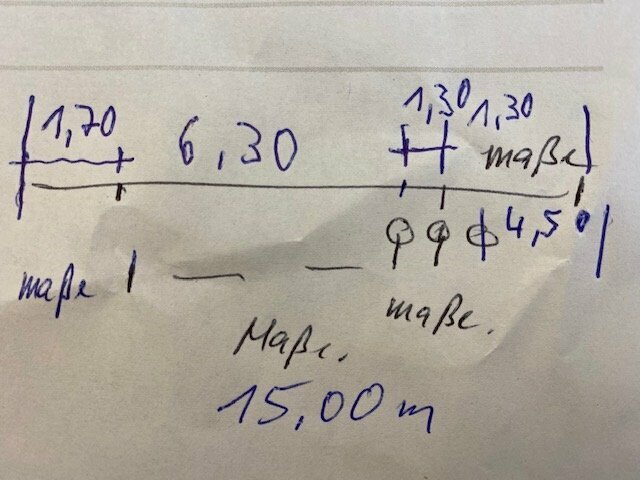 1,30 1,30
1,70 6,30 maße
4,50
maße
maße.
Maße.
15,00 m